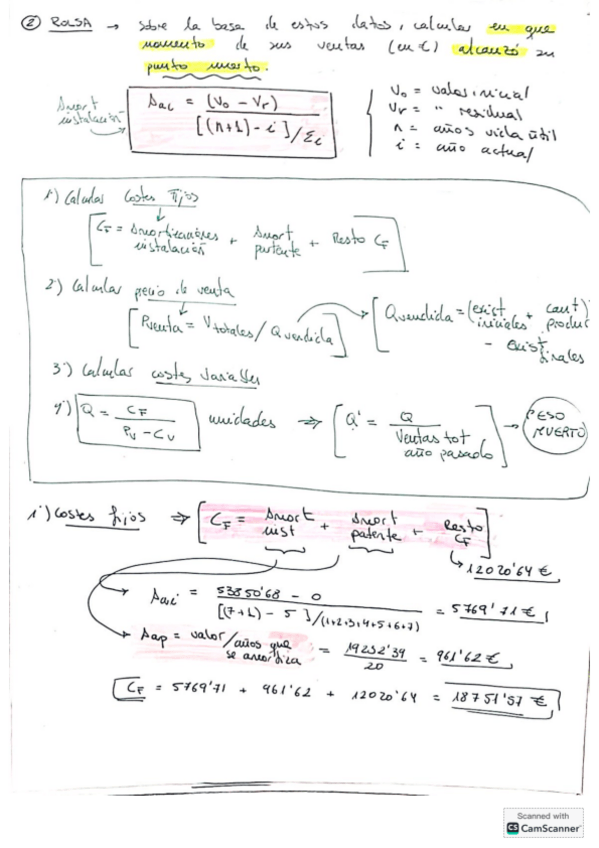 ② ROLSA → sobre la base de estos datos, calcular en que
momento de sus ventas (en €) alcanzó su
punto muerto.
Amort instalación
Aac = (Vo - Vr) / [(n+1) - i] / Σi
Vo = valor inicial
Vr = " residual
n = años vida útil
i = año actual
1º) Calcular costes fijos
[CF = Amortizaciones instalación + Amort patente + Resto CF]
2º) Calcular precio de venta
[Pventa = Vtotales / Qvendida]
[Qvendida = (exist iniciales + cant produc - exist finales
3º) Calcular costes variables
4º) Q = CF / Pv - Cv unidades ⇒ [Q' = Q / Ventas tot año pasado] → PESO MUERTO
1º) Costes fijos ⇒ [CF = Amort inst + Amort patente + Resto CF]
↳ 12020'64 €
Aaci = 53850'68 - 0 / [(7+1) - 5] / (1+2+3+4+5+6+7) = 5769'71 €
Aap = valor/años que se amortiza = 19232'39 / 20 = 961'62 €
CF = 5769'71 + 961'62 + 12020'64 = 18751'57 €
Scanned with
CS CamScanner